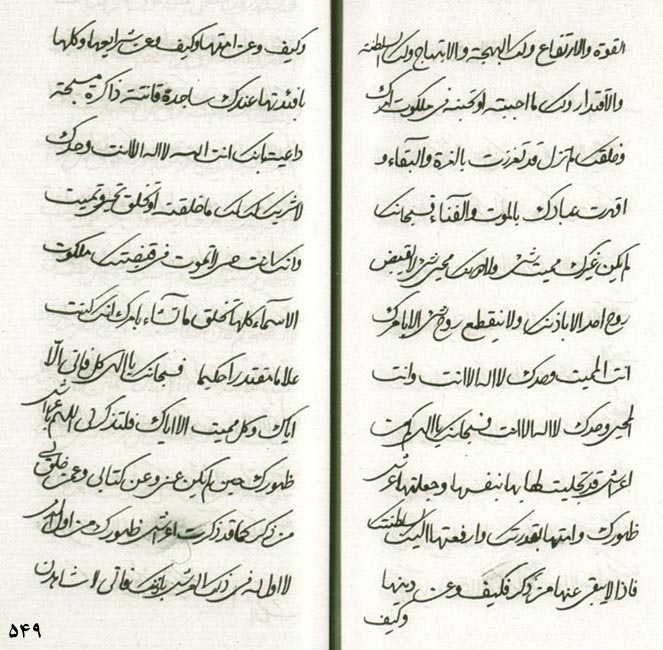 القوة والارتفاع ولك البهجة والابتهاج ولك السلطنة
والاقتدار ولك ما احببته او تحبنه فى ملكوت امرك
وخلقك لم تزل قد تعززت بالعزة والبقاء و
اقهرت عبادك بالموت والفناء فسبحانك
لم يكن غيرك مميت شىء ولا دونك محيى شىء لا يقبض
روح احد الا باذنك ولا ينقطع روح شىء الا بامرك
انت المميت وحدك لا اله الا انت وانت
المحيى وحدك لا اله الا انت فسبحانك يا الهى كم من
اعراش قد تجليت لها بها بنفسها وجعلتها اعراش
ظهورك وامتها بقدرتك وارفعتها اليك بسلطنتك
فاذا لا يبقى عنها من ذكر فكيف وعن دينها
وكيف
وكيف وعن امتها وكيف وعن شرايعها وكلها
بافئدتها عندك ساجدة قانتة ذاكرة مسبحة
داعية بانك انت الله لا اله الا انت وحدك
لا شريك لك لك ما خلقت او تخلق تحيى وتميت
وانك انت حى لا تموت فى قبضتك ملكوت
الاسماء كلها تخلق ما تشاء بامرك انك كنت
علاما مقتدرا حكيما فسبحانك يا الهى كل فانى الا
اياك وكل مميت الا اياك فلتذكرنى اللهم
ظهورك حين لم يكن عنى وعن كتابى وعن خلقى
من ذكر كما قد ذكرت اعراش ظهورك من اول الذى
لا اول له فى ذلك العرش باذنك فانى لا شاهدن
۵۴۹